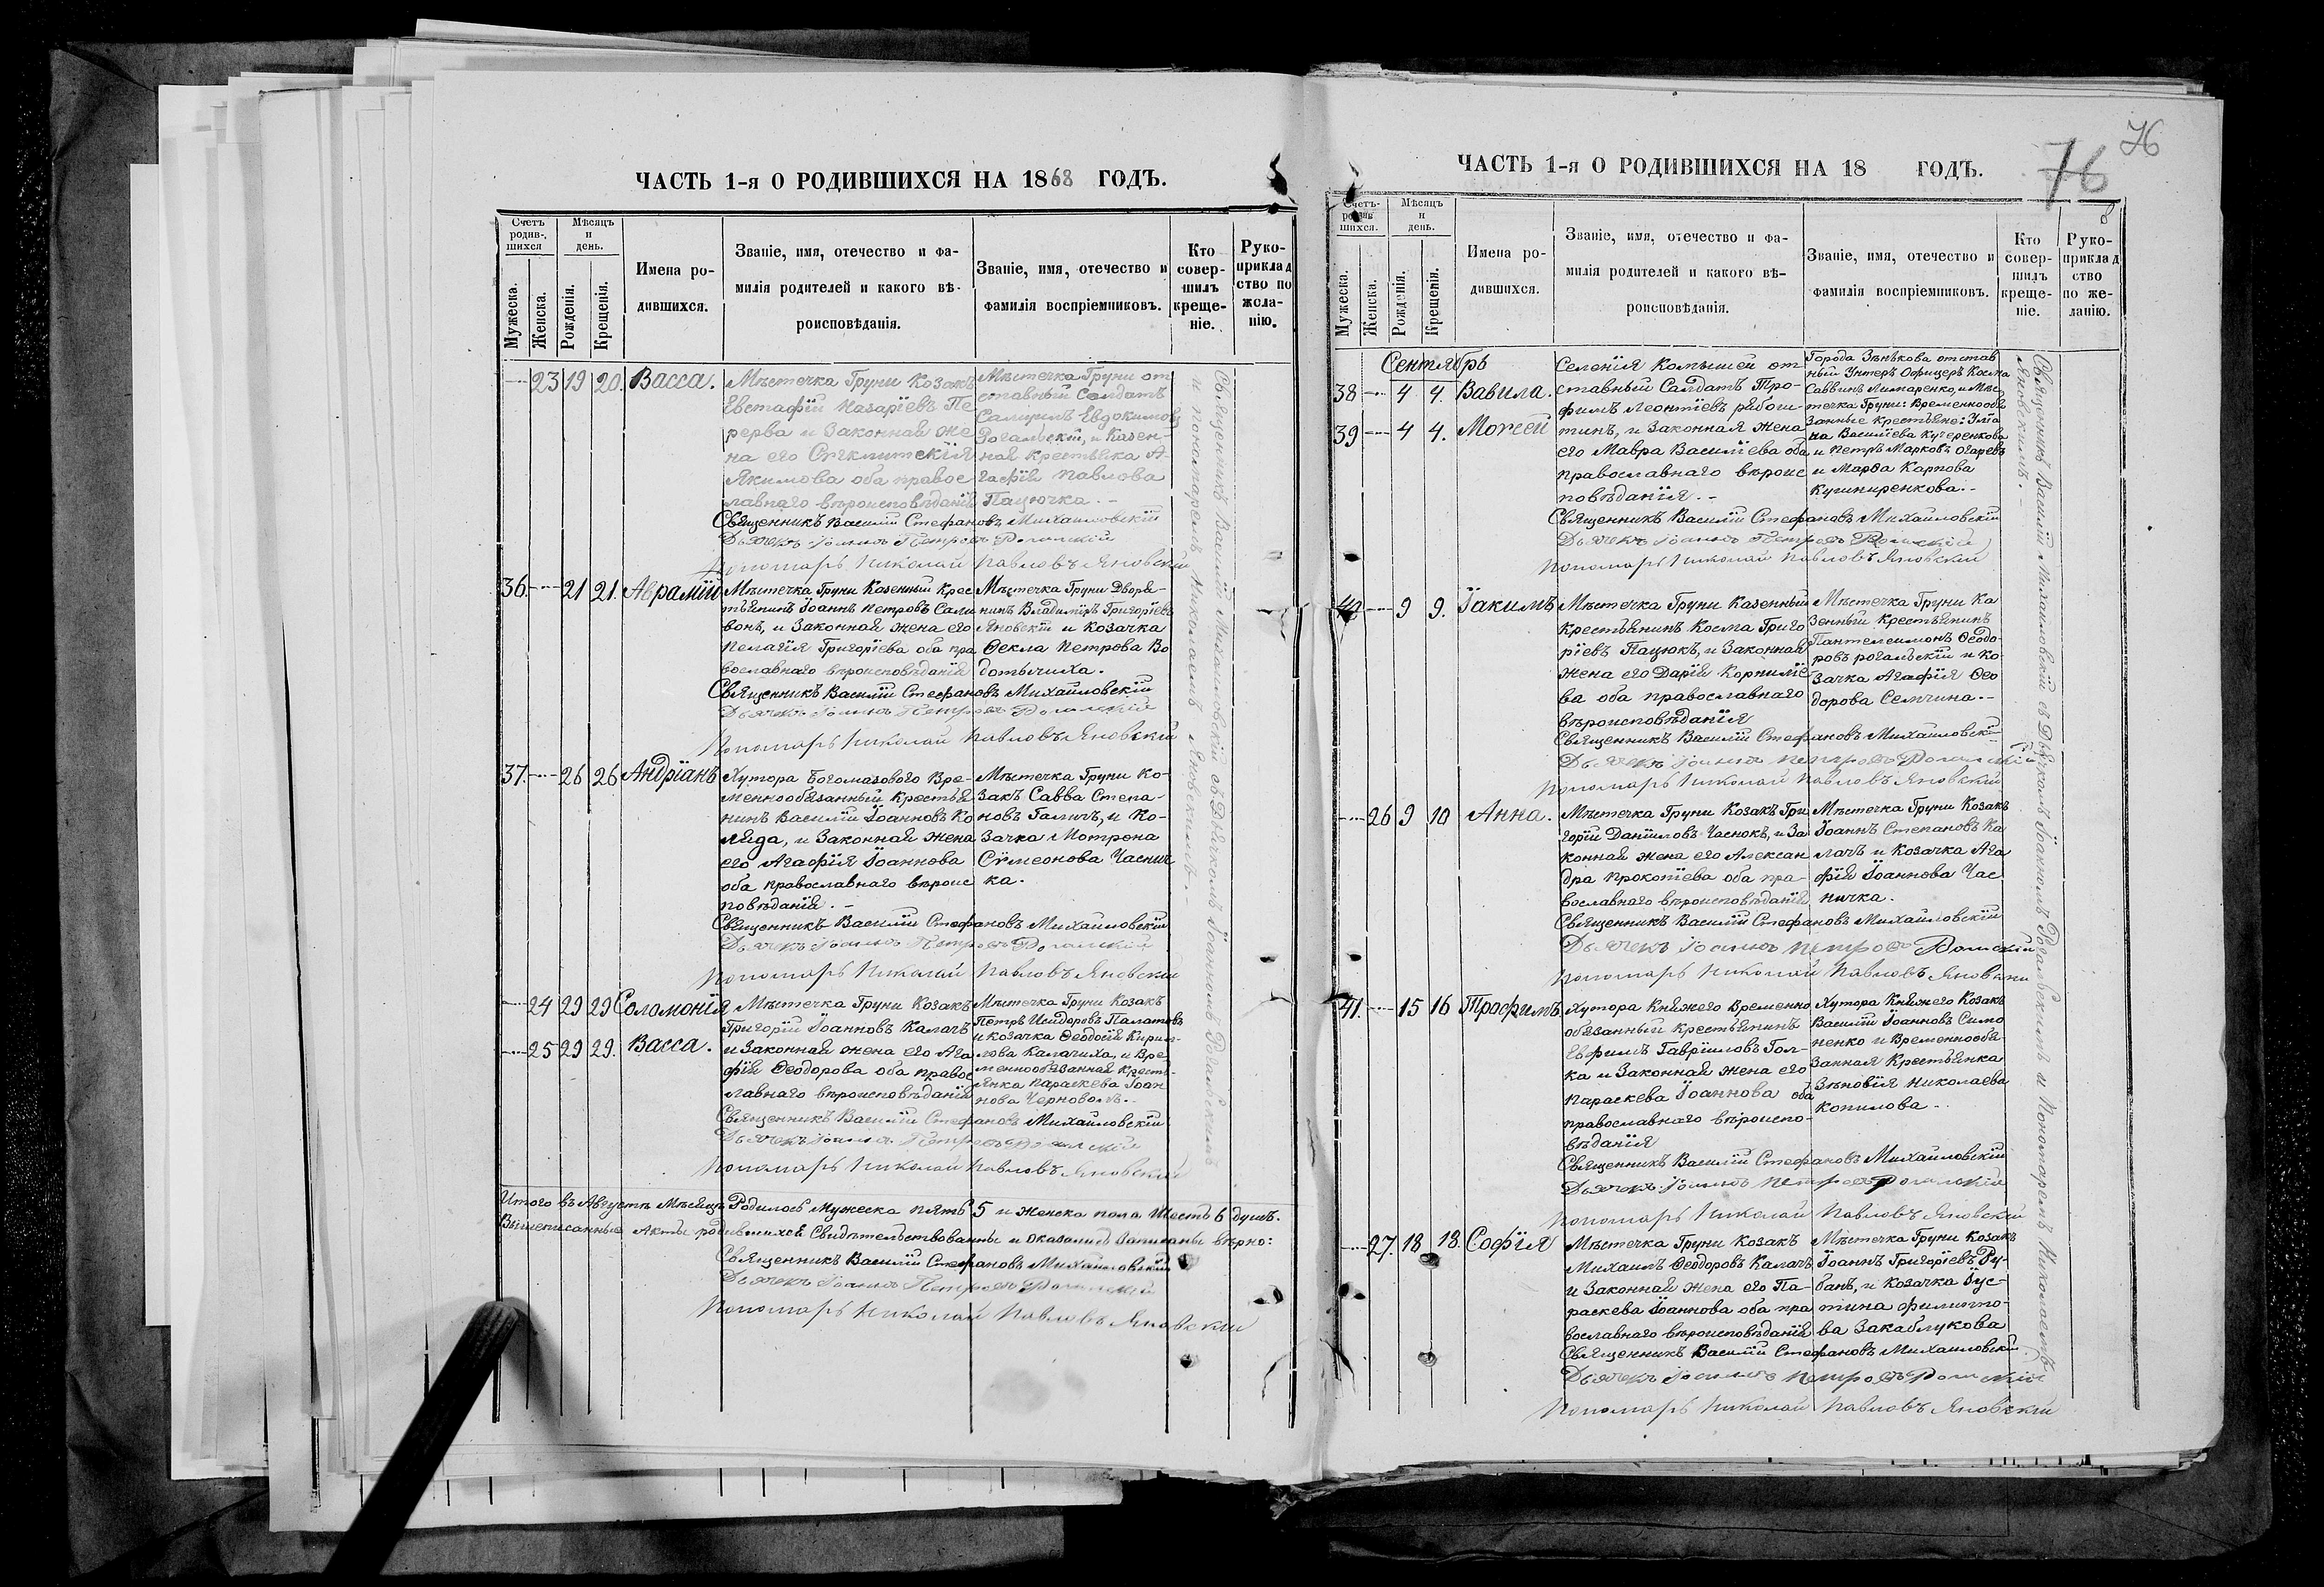 ЧАСТЬ 1-я О РОДИВШИХСЯ НА 1868 ГОДЪ.
Счетъ родив-шихся
Мѣсяцъ и день.
Мужеска.
Женска.
Рожденія.
Крещенія.
Имена ро-
дившихся.
Званіе, имя, отечество и фа-
милія родителей и какого вѣ-
роисповѣданія.
Званіе, имя, отечество и
фамилія воспріемниковъ.
Кто совер-шилъ креще-ніе.
Руко-приклад ство по жела-нію.
23 19 20. Васса.
Мѣстечка Груни Козакъ
Евстафій Назаріевъ Пе
рерва и Законная же
на его Сѵнклитскія
Якимова оба правос
лавнаго вѣроисповѣданія
Мѣстечка Груни от
ставный Солдатъ
Самуилъ Евдокимовъ
Рогальскій, и Казен-
ная крестьянка А-
гафія Павлова
Пацючка. -
Священникъ Василій Стефановъ Михайловскій
Дьячекъ Іоаннъ Петровъ Рогальскій
Пономарь Николай Павловъ Яновскій
36. 21 21. Аврамій
Мѣстечка Груни Казенный Крес
тьянинъ Іоаннъ Петровъ Сали
вонъ, и Законная жена его
Пелагія Григоріева оба пра
вославнаго вѣроисповѣданія
Мѣстечка Груни Дворя-
нинъ Владимиръ Григоріевъ
Яновскій и Козачка
Ѳекла Петрова Во
дотычиха.
Священникъ Василій Стефановъ Михайловскій
Дьячекъ Іоаннъ Петровъ Рогальскій
Пономарь Николай Павловъ Яновскій
37. 26 26 Андріанъ
Хутора Богомазового Вре-
меннообязанный крестья
нинъ Василій Іоанновъ Ко
ляда, и Законная жена
его Агафія Іоаннова
оба православнаго вѣроис
повѣданія. -
Мѣстечка Груни Ко-
закъ Савва Степа-
новъ Галичъ, и Ко-
зачка Мотрона
Сѵмеонова Часнич
ка.
Священникъ Василій Стефановъ Михайловскій
Дьячекъ Іоаннъ Петровъ Рогальскій
Пономарь Николай Павловъ Яновскій
24 29 29 Соломонія
25 29 29. Васса.
Мѣстечка Груни Козакъ
Григорій Іоанновъ Калачъ
и Законная жена его Ага
фія Ѳеодорова оба правос
лавнаго вѣроисповѣданія
Мѣстечка Груни Козакъ
Петръ Исидоровъ Палатовъ
и козачка Ѳеодосія Кирил-
лова Калачиха, и Вре
меннообязанная Кресть-
янка Параскева Іоан
нова Черноволъ. -
Священникъ Василій Стефановъ Михайловскій
Дьячекъ Іоаннъ Петровъ Рогальскій
Пономарь Николай Павловъ Яновскій
Священникъ Василій Михайловскій съ Дьячкомъ Іоанномъ Рогальскимъ
и пономаремъ Николаемъ Яновскимъ. -
Итого въ Августѣ Мѣсяцѣ Родилось Мужеска пять 5 и женска пола Шесть 6 душъ.
Вышеписанные Акты родившихся Свидѣтельствованы и оказались записаны вѣрно:
Священникъ Василій Стефановъ Михайловскій
Дьячекъ Іоаннъ Петровъ Рогальскій
Пономарь Николай Павловъ Яновскій
76
76
ЧАСТЬ 1-я О РОДИВШИХСЯ НА 18 ГОДЪ.
Счетъ- родив шихся.
Мѣсяцъ и день.
Мужеска.
Женска.
Рожденія.
Крещенія.
Имена ро-
дившихся.
Званіе, имя, отечество и фа-
милія родителей и какого вѣ-
роисповѣданія.
Званіе, имя, отечество и
фамилія воспріемниковъ.
Кто совер-шилъ креще-ніе.
Руко-приклад ство по же-ланію.
Сентябрь
38 4 4. Вавила.
39 4 4. Моѵсей
Селенія Комышей от
ставный Салдатъ Тро-
фимъ Леонтіевъ
и Законная жена
его Мавра Василіева оба
православнаго вѣроис
повѣданія. -
Города Зѣнькова отстав
ный Унтеръ Офицеръ Косма
Саввинъ Лимаренко, и Мѣс
течка Груни: Временнообя
занные крестьяне: Улія
на Василіева Кучеренкова
и Петръ Марковъ Огаревъ
и Марѳа Карпова
Кушниренкова. -
Священникъ Василій Стефановъ Михайловскій
Дьячекъ Іоаннъ Петровъ Рогальскій
Пономарь Николай Павловъ Яновскій
40 9 9. Іакимъ
Мѣстечка Груни Казенный
Крестьянинъ Косма Григо
ріевъ Пацюкъ, и Законная
жена его Дарія Корниліе
ва оба православнаго
вѣроисповѣданія
Мѣстечка Груни Ка
зенный Крестьянинъ
Пантелеимонъ Ѳеодо-
ровъ рогальскій и ко
зачка Агафія Ѳео
дорова Семчина. -
Священникъ Василій Стефановъ Михайловскій
Дьячекъ Іоаннъ Петровъ Рогальскій
Пономарь Николай Павловъ Яновскій
26 9 10 Анна.
Мѣстечка Груни Козакъ Гри
горій Даніиловъ Часнокъ, и За
конная жена его Алексан
дра Прокопіева оба пра-
вославнаго вѣроисповѣданія
Мѣстечка Груни Козакъ
Іоаннъ Степановъ Ка
лачъ и козачка Ага
фія Іоаннова Час
ничка.
Священникъ Василій Стефановъ Михайловскій
Дьячекъ Іоаннъ Петровъ Рогальскій
Пономарь Николай Павловъ Яновскій
41. 15 16 Трофимъ
Хутора Княжего Временно
обязанный крестьянинъ
Евфимъ Гавріиловъ Гол-
ка и Законная жена его
Параскева Іоаннова оба
православнаго вѣроиспо-
вѣданія
Хутора Княжего Козакъ
Василій Іоанновъ Симо
ненко и Временнообя-
занная Крестьянка
Зѣновія Николаева
Копилова - .
Священникъ Василій Стефановъ Михайловскій
Дьячекъ Іоаннъ Петровъ Рогальскій
Пономарь Николай Павловъ Яновскій
27. 18 18. Софія
Мѣстечка Груни Козакъ
Михаилъ Ѳеодоровъ Калачъ
и Законная жена его Па-
раскева Іоаннова оба пра
вославнаго вѣроисповѣданія
Мѣстечка Груни Козакъ
Іоаннъ Григоріевъ Ру-
банъ, и козачка Іус-
тина Филиппо-
ва Закаблукова
Священникъ Василій Стефановъ Михайловскій
Дьячекъ Іоаннъ Петровъ Рогальскій
Пономарь Николай Павловъ Яновскій
Священникъ Василій Михайловскій съ Дьячкомъ Іоанномъ Рогальскимъ и Пономаремъ Николаемъ
Яновскимъ. -